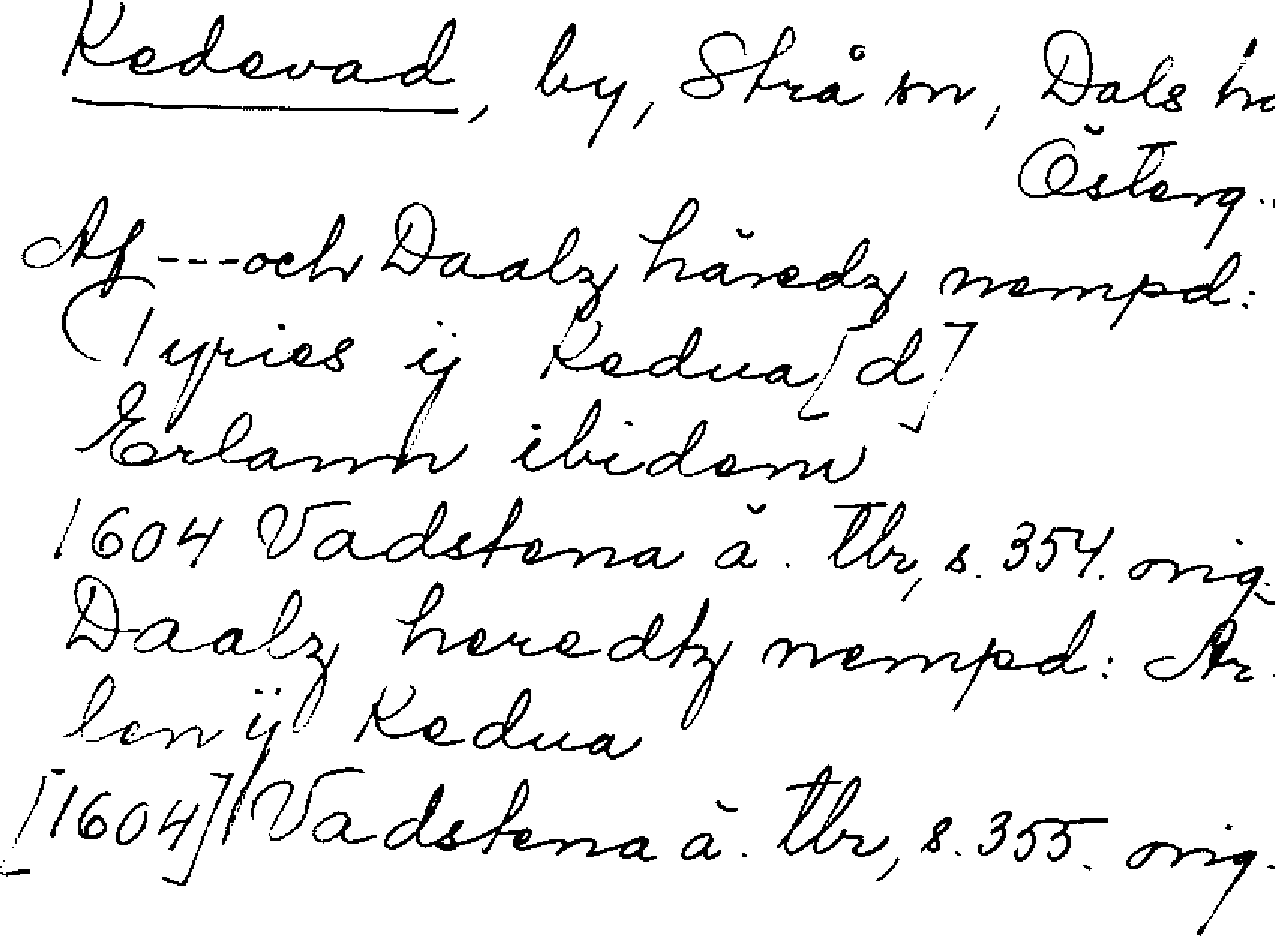 Kedevad, by, Strå sn, Dals hd
Österg.
Af ---och Daalz häredz nempd:
(Tyries ij Kedua[d]
Erlann ibidem
1604 Vadstena ä. tbr, s. 354. orig.
Daalz heredtz nempd: Är.
len ij Kedua
[1604] Vadstena ä. tbr, s. 355. orig.